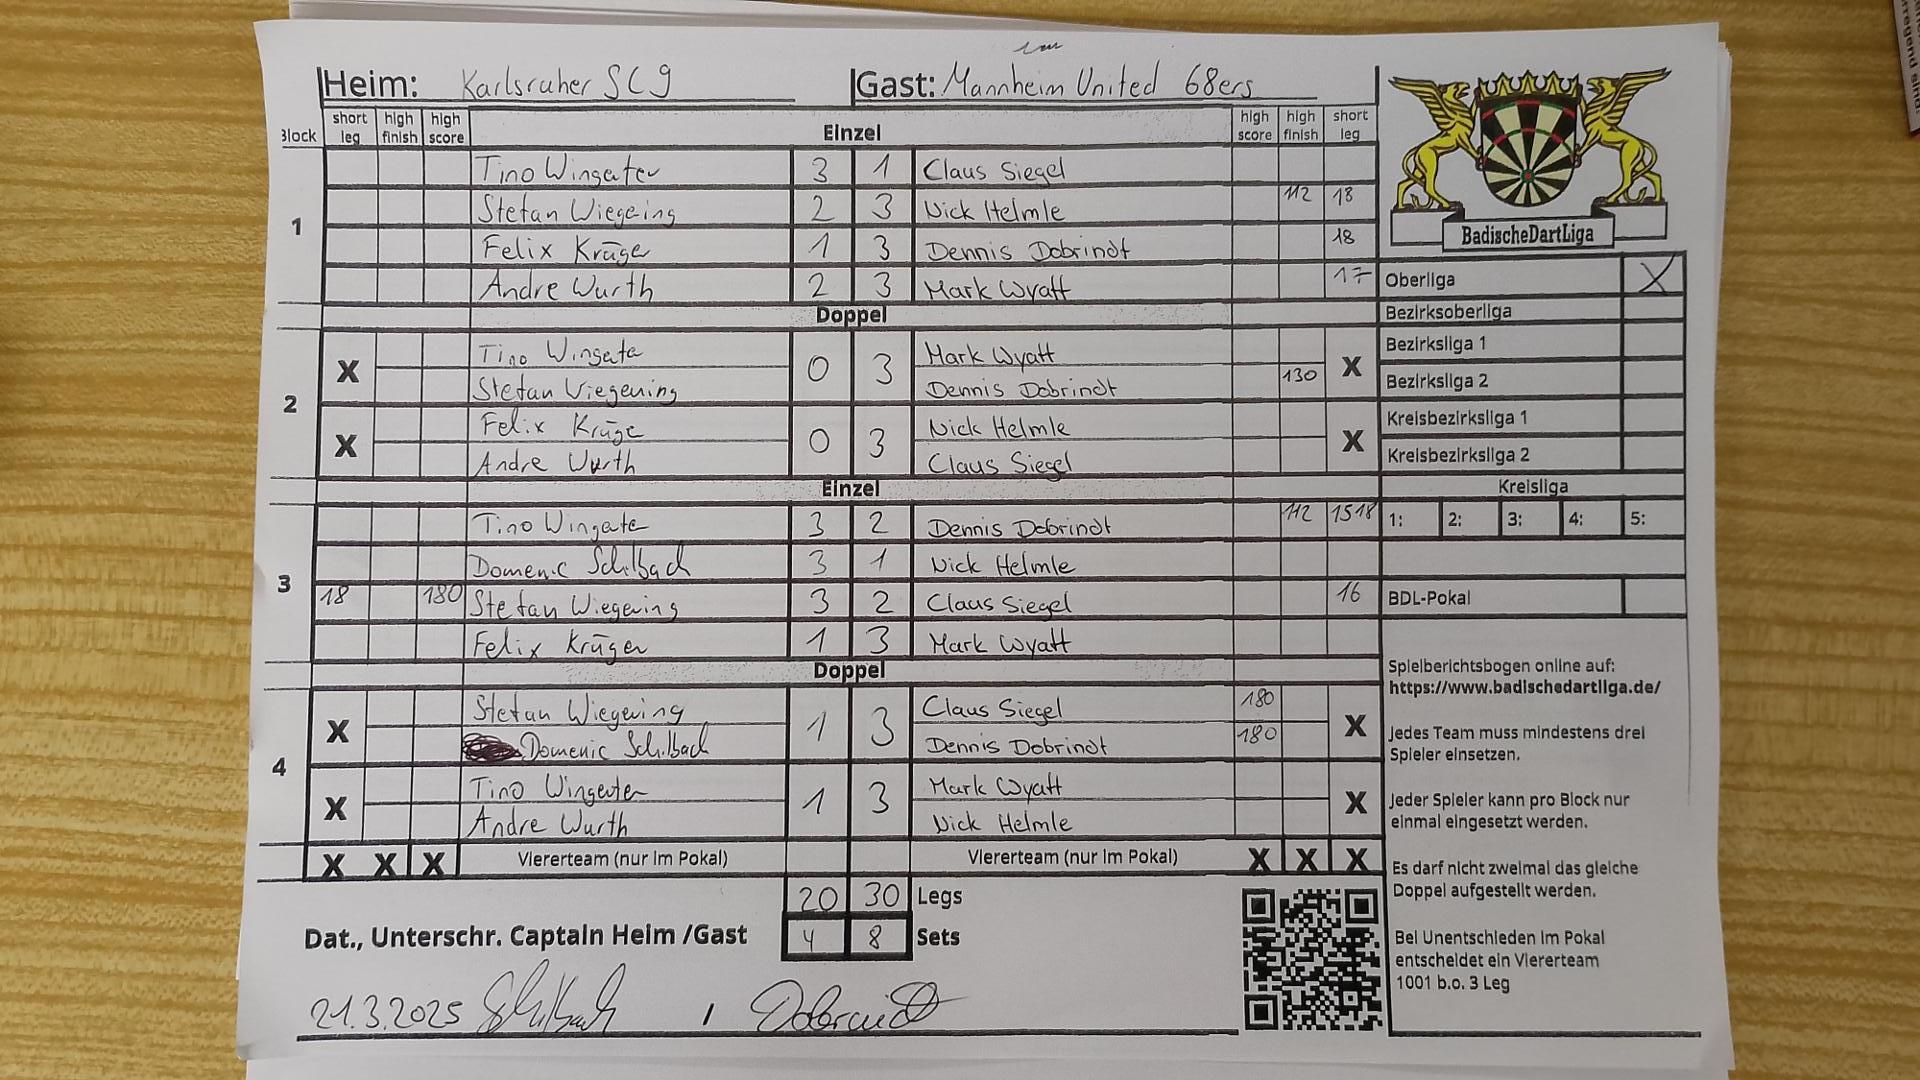 Heim: Karlsruher SC 9 Gast: Mannheim United 68ers
Block short leg high finish high score Einzel high score high finish short leg
1
Tino Wingerter 3 1 Claus Siegel
Stefan Wiegering 2 3 Nick Helmle 112 18
Felix Krüger 1 3 Dennis Dobrindt 18
Andre Wurth 2 3 Mark Wyatt 17
Doppel
2
X Tino Wingerter 0 3 Mark Wyatt X
Stefan Wiegering Dennis Dobrindt 130
X Felix Krüger 0 3 Nick Helmle X
Andre Wurth Claus Siegel
Einzel
3
Tino Wingerter 3 2 Dennis Dobrindt 112 15 18
Domenic Schilbach 3 1 Nick Helmle
18 180 Stefan Wiegering 3 2 Claus Siegel 16
Felix Krüger 1 3 Mark Wyatt
Doppel
4
X Stefan Wiegering 1 3 Claus Siegel 180 X
Domenic Schilbach Dennis Dobrindt 180
X Tino Wingerter 1 3 Mark Wyatt X
Andre Wurth Nick Helmle
X X X Viererteam (nur im Pokal) Viererteam (nur im Pokal) X X X
20 30 Legs
Dat., Unterschr. Captain Heim /Gast 4 8 Sets
21.3.2025 Schilbach / Dobrindt
BadischeDartLiga
Oberliga X
Bezirksoberliga
Bezirksliga 1
Bezirksliga 2
Kreisbezirksliga 1
Kreisbezirksliga 2
Kreisliga
1: 2: 3: 4: 5:
BDL-Pokal
Spielberichtsbogen online auf:
https://www.badischedartliga.de/
Jedes Team muss mindestens drei
Spieler einsetzen.
Jeder Spieler kann pro Block nur
einmal eingesetzt werden.
Es darf nicht zweimal das gleiche
Doppel aufgestellt werden.
Bei Unentschieden im Pokal
entscheidet ein Viererteam
1001 b.o. 3 Leg